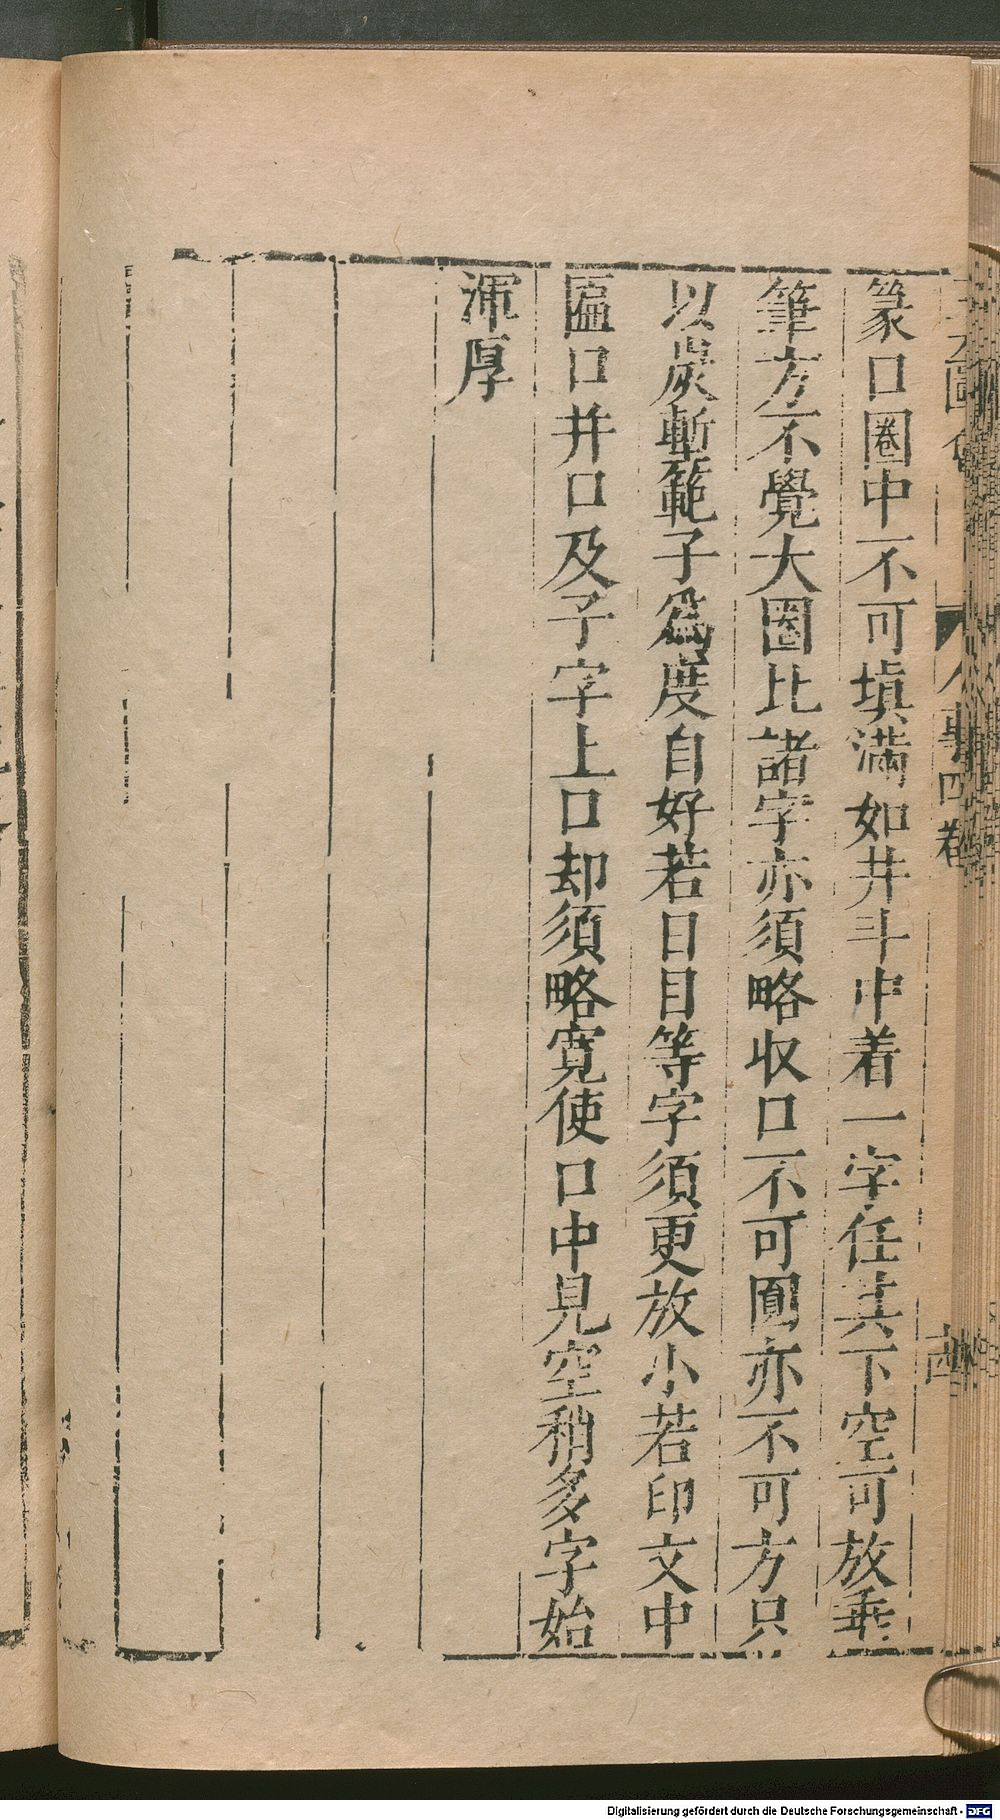 篆口圈中不可填滿如井斗中着一字任其下空可放垂
筆方不覺大圈比諸字亦須略收口不可圓亦不可方只
以炭墼範子爲度自好若日目等字須更放小若印文中
匾口井口及子字上口却須略寬使口中見空稍多字始
渾厚
Digitalisierung gefördert durch die Deutsche Forschungsgemeinschaft - DFG